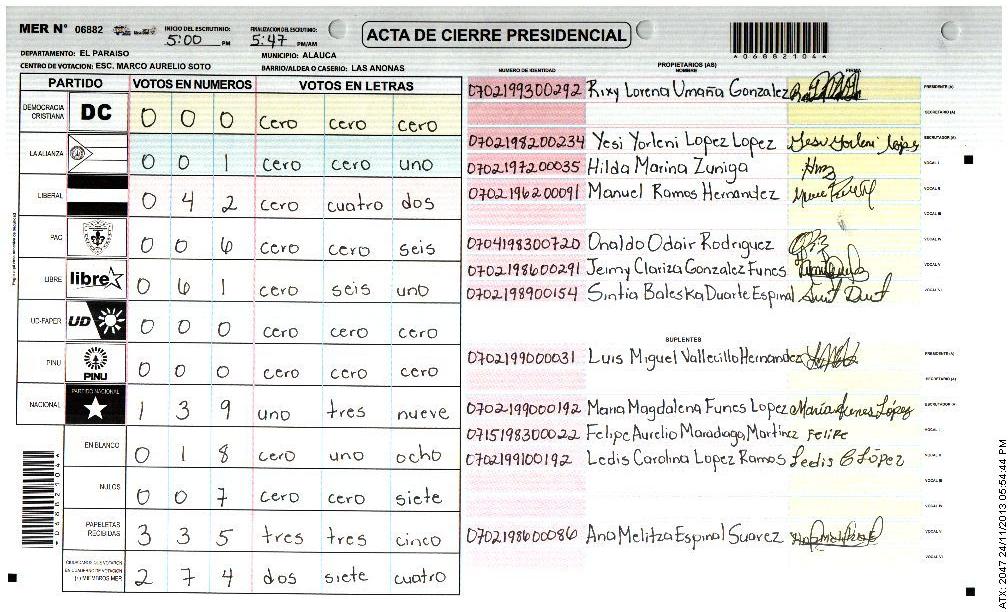 MER Nº 06882
INICIO DEL ESCRUTINIO: 5:00 PM
FINALIZACION DEL ESCRUTINIO: 5:47 PM/AM
ACTA DE CIERRE PRESIDENCIAL
*06882104*
DEPARTAMENTO: EL PARAISO
MUNICIPIO: ALAUCA
CENTRO DE VOTACION: ESC. MARCO AURELIO SOTO
BARRIO/ALDEA O CASERIO: LAS ANONAS
PARTIDO VOTOS EN NUMEROS VOTOS EN LETRAS
DEMOCRACIA CRISTIANA DC 0 0 0 cero cero cero
LA ALIANZA 0 0 1 cero cero uno
LIBERAL 0 4 2 cero cuatro dos
PAC 0 0 6 cero cero seis
LIBRE libre 0 6 1 cero seis uno
UD-FAPER UD 0 0 0 cero cero cero
PINU PINU 0 0 0 cero cero cero
NACIONAL PARTIDO NACIONAL 1 3 9 uno tres nueve
EN BLANCO 0 1 8 cero uno ocho
NULOS 0 0 7 cero cero siete
PAPELETAS RECIBIDAS 3 3 5 tres tres cinco
CIUDADANOS DE VOTACION EN CUADERNO DE VOTACION (+) MIEMBROS MER 2 7 4 dos siete cuatro
*06882104*
PROPIETARIOS (AS)
NUMERO DE IDENTIDAD NOMBRE FIRMA
0702199300292 Rixy Lorena Umaña Gonzalez PRESIDENTE (A)
SECRETARIO (A)
0702198200234 Yesi Yorleni Lopez Lopez Yesi Yorleni López ESCRUTADOR (A)
0702197200035 Hilda Marina Zuniga Hmz VOCAL I
0702196200091 Manuel Ramos Hernandez VOCAL II
VOCAL III
0704198300720 Onaldo Odair Rodriguez VOCAL IV
0702198600291 Jeimy Clariza Gonzalez Funes VOCAL V
0702198900154 Sintia Baleska Duarte Espinal VOCAL VI
SUPLENTES
0702199000031 Luis Miguel Vallecillo Hernandez PRESIDENTE (A)
SECRETARIO (A)
0702199000192 Maria Magdalena Funes Lopez María Funes López ESCRUTADOR (A)
0715198300022 Felipe Aurelio Maradiaga Martinez Felipe VOCAL I
0702199100192 Ledis Carolina Lopez Ramos Ledis C López VOCAL II
VOCAL III
VOCAL IV
0702198600086 Ana Melitza Espinal Suarez VOCAL V
VOCAL VI
ATX: 2047 24/11/2013 05:54:44 PM